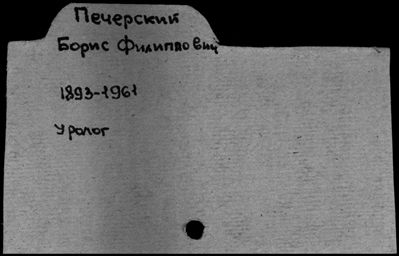 Печерский
Борис Филиппович
1893-1961
Уролог